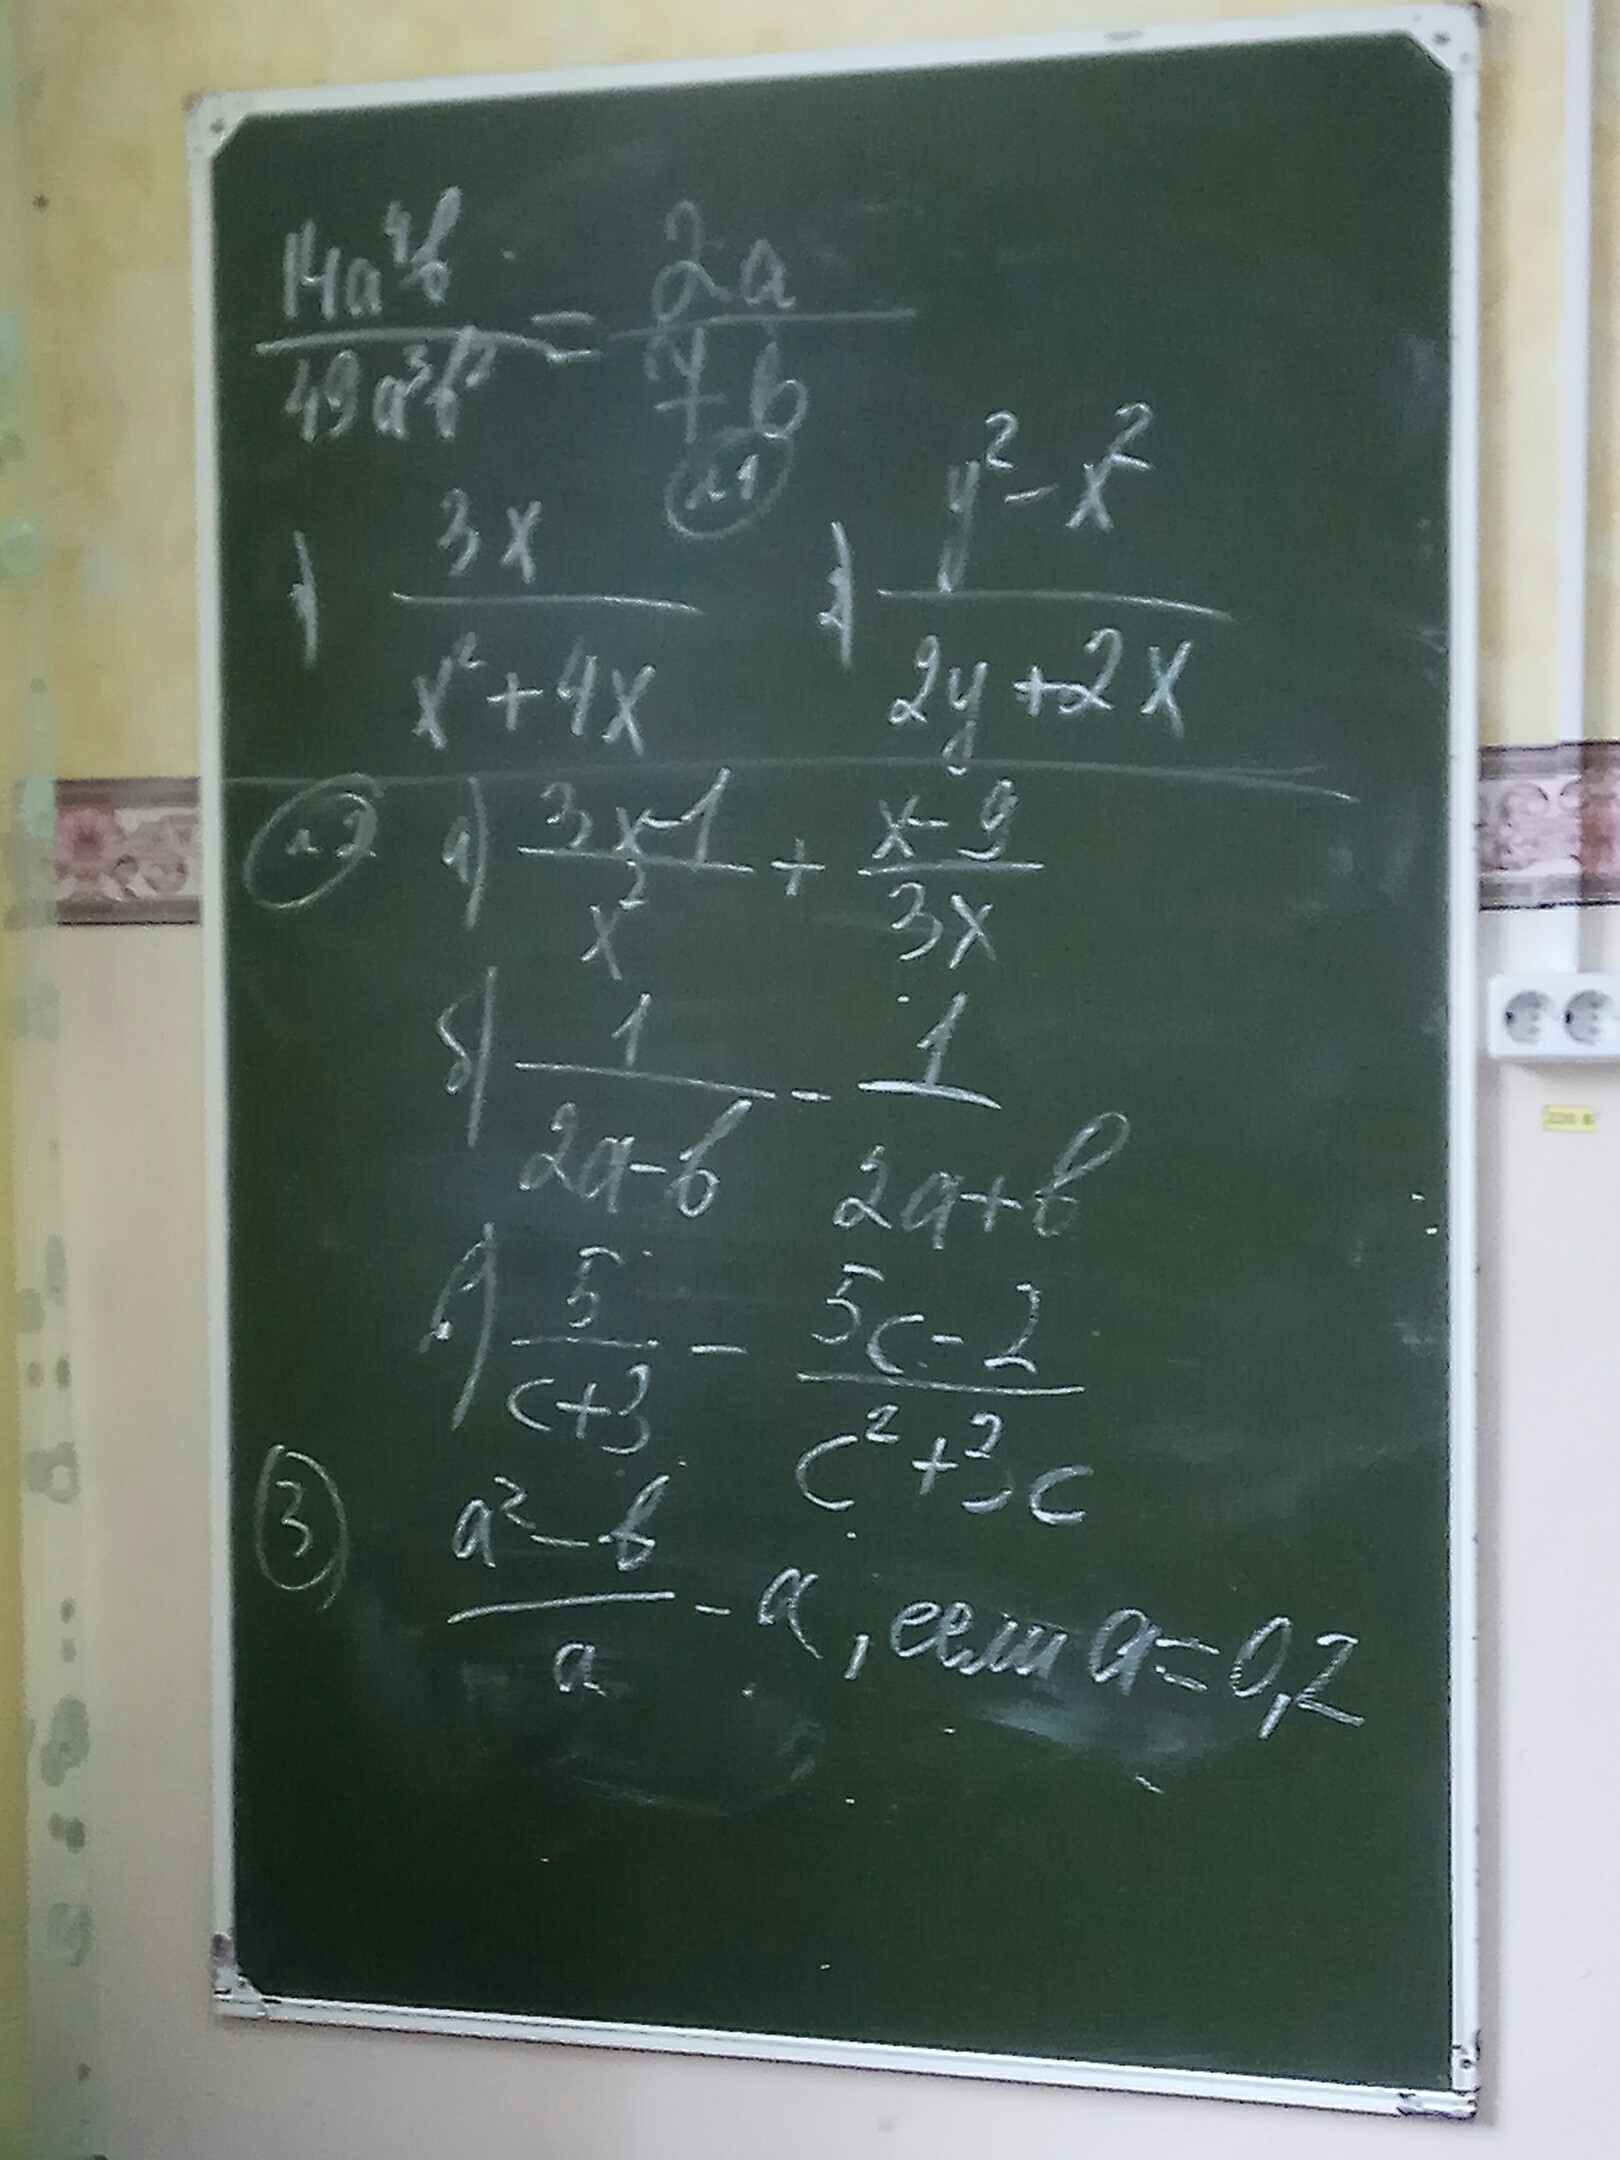 14a⁴b / 49a³b² = 2a / 7b
№1
1) 3x / (x² + 4x) 2) (y² - x²) / (2y + 2x)
№2 а) (3x-1) / x² + (x-9) / 3x
б) 1 / (2a-b) - 1 / (2a+b)
в) 5 / (c+3) - (5c-2) / (c²+3c)
3 (a²-b) / a - a, если a=0,2